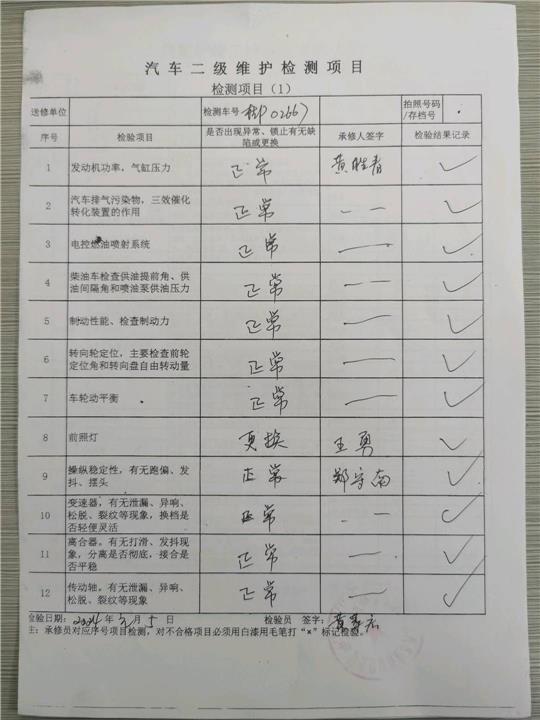 汽车二级维护检测项目
检测项目（1）
送修单位 检测车号 02667 拍照号码/存档号
序号 检验项目 是否出现异常、锁止有无缺陷或更换 承修人签字 检验结果记录
1 发动机功率，气缸压力 正常 黄胜春 ✓
2 汽车排气污染物，三效催化转化装置的作用 正常 — — ✓
3 电控燃油喷射系统 正常 — ✓
4 柴油车检查供油提前角、供油间隔角和喷油泵供油压力 正常 — ✓
5 制动性能、检查制动力 正常 — ✓
6 转向轮定位，主要检查前轮定位角和转向盘自由转动量 正常 — ✓
7 车轮动平衡 正常 — ✓
8 前照灯 更换 王勇 ✓
9 操纵稳定性，有无跑偏、发抖、摆头 正常 郑守南 ✓
10 变速器，有无泄漏、异响、松脱、裂纹等现象，换档是否轻便灵活 正常 — — ✓
11 离合器。有无打滑、发抖现象，分离是否彻底，接合是否平稳 正常 — ✓
12 传动轴。有无泄漏、异响、松脱、裂纹等现象 正常 — ✓
检验日期： 年 月 5 日 检验员 签字：黄
主：承修员对应序号项目检测，对不合格项目必须用白漆用毛笔打“×”标记检验。